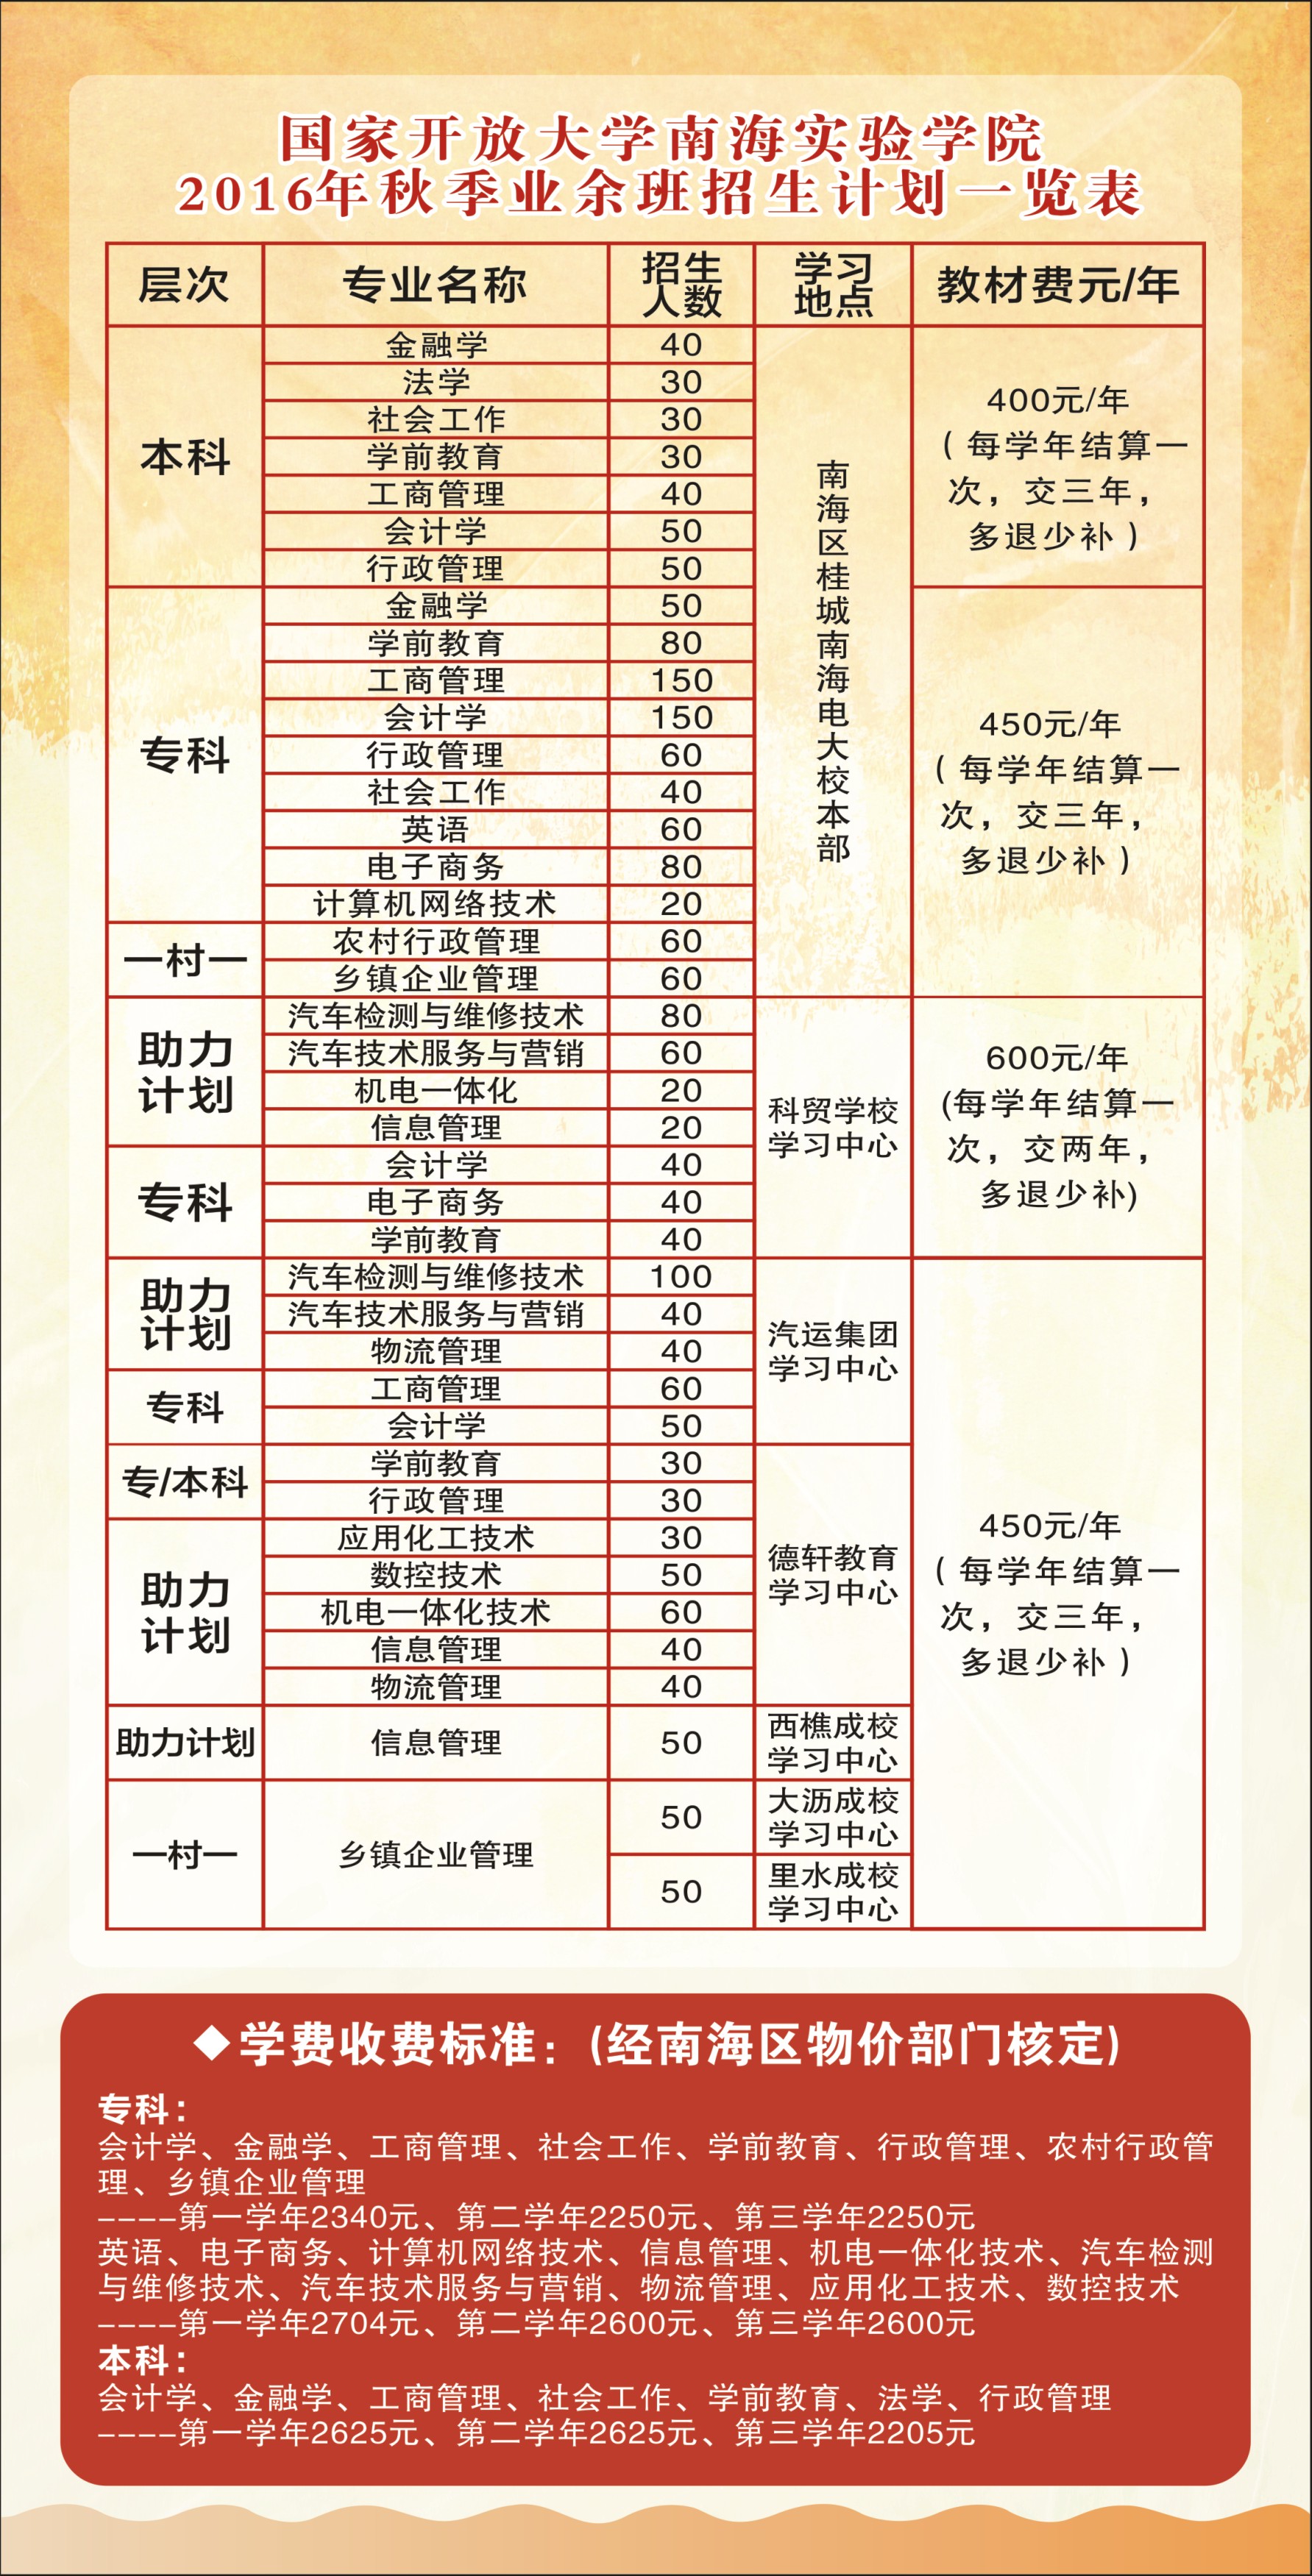 国家开放大学南海实验学院
2016年秋季业余班招生计划一览表
层次 专业名称 招生人数 学习地点 教材费元/年
本科
金融学 40
法学 30
社会工作 30
学前教育 30
工商管理 40
会计学 50
行政管理 50
南海区桂城南海电大校本部
400元/年
（每学年结算一
次，交三年，
多退少补）
专科
金融学 50
学前教育 80
工商管理 150
会计学 150
行政管理 60
社会工作 40
英语 60
电子商务 80
计算机网络技术 20
一村一
农村行政管理 60
乡镇企业管理 60
450元/年
（每学年结算一
次，交三年，
多退少补）
助力
计划
汽车检测与维修技术 80
汽车技术服务与营销 60
机电一体化 20
信息管理 20
专科
会计学 40
电子商务 40
学前教育 40
科贸学校
学习中心
600元/年
(每学年结算一
次，交两年，
多退少补)
助力
计划
汽车检测与维修技术 100
汽车技术服务与营销 40
物流管理 40
专科
工商管理 60
会计学 50
汽运集团
学习中心
专/本科
学前教育 30
行政管理 30
助力
计划
应用化工技术 30
数控技术 50
机电一体化技术 60
信息管理 40
物流管理 40
德轩教育
学习中心
450元/年
（每学年结算一
次，交三年，
多退少补）
助力计划 信息管理 50
西樵成校
学习中心
一村一 乡镇企业管理
50
大沥成校
学习中心
50
里水成校
学习中心
◆学费收费标准：(经南海区物价部门核定)
专科：
会计学、金融学、工商管理、社会工作、学前教育、行政管理、农村行政管
理、乡镇企业管理
----第一学年2340元、第二学年2250元、第三学年2250元
英语、电子商务、计算机网络技术、信息管理、机电一体化技术、汽车检测
与维修技术、汽车技术服务与营销、物流管理、应用化工技术、数控技术
----第一学年2704元、第二学年2600元、第三学年2600元
本科：
会计学、金融学、工商管理、社会工作、学前教育、法学、行政管理
----第一学年2625元、第二学年2625元、第三学年2205元